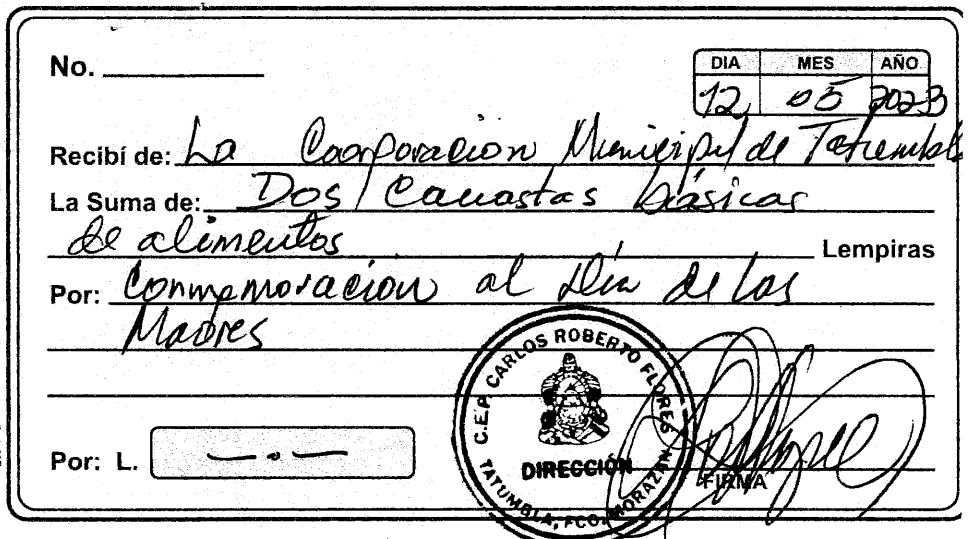 No.
DIA MES AÑO
12 05 2023
Recibí de: La Coorporacion Municipal de Tatumbla
La Suma de: Dos Canastas básicas
de alimentos Lempiras
Por: Conmemoracion al Día de las
Madres
C.E.P. CARLOS ROBERTO FLORES
DIRECCIÓN
TATUMBLA, FCO. MORAZÁN
Por: L. — . —
FIRMA